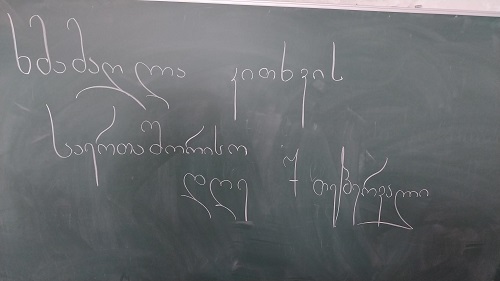 ხმამაღლა კითხვის
საერთაშორისო
დღე 7 თებერვალი